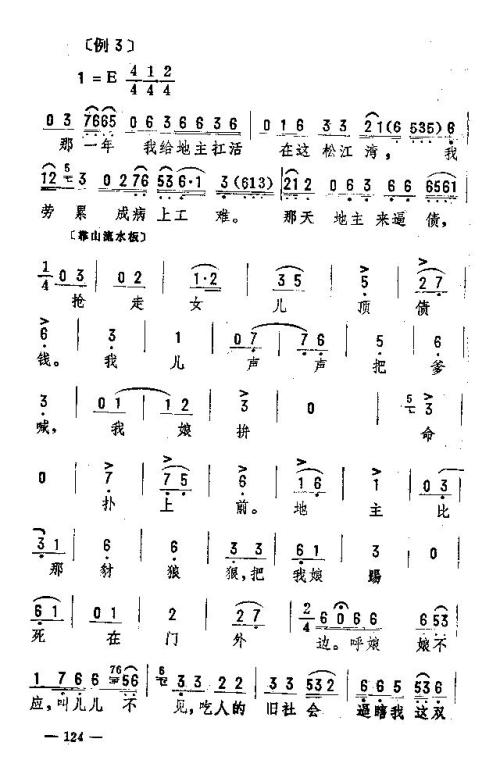 〔例 3〕
1 = E 4/4 1/4 2/4
0 3 7665 0 6 3 6 6 3 6 0 1 6 3 3 2 1 ( 6 535 ) 6
那 一年 我给地主扛活 在这 松江湾， 我
12 3 0 2 76 53 6·1 3 (613) 21 2 0 6 3 6 6 6561
劳 累 成病 上工 难。 那天 地主 来逼 债，
〔靠山流水板〕
1/4 0 3 0 2 1·2 3 5 5 2 7
抢 走 女 儿 顶 债
6 3 1 0 7 7 6 5 6
钱。 我 儿 声 声 把 爹
3 0 1 1 2 3 0 3
喊， 我 娘 拼 命
0 7 7 5 6 1 6 1 0 3
扑 上 前。 地 主 比
3 1 6 6 3 3 6 1 3 0
那 豺 狼 狠，把 我娘 踢
6 1 0 1 2 2 7 2/4 6 0 6 6 6 53
死 在 门 外 边。呼娘 娘不
1 7 6 6 56 3 3 2 2 3 3 532 6 6 5 3 6
应，叫儿儿 不 见，吃人的 旧社会 逼瞎我 这双
— 124 —